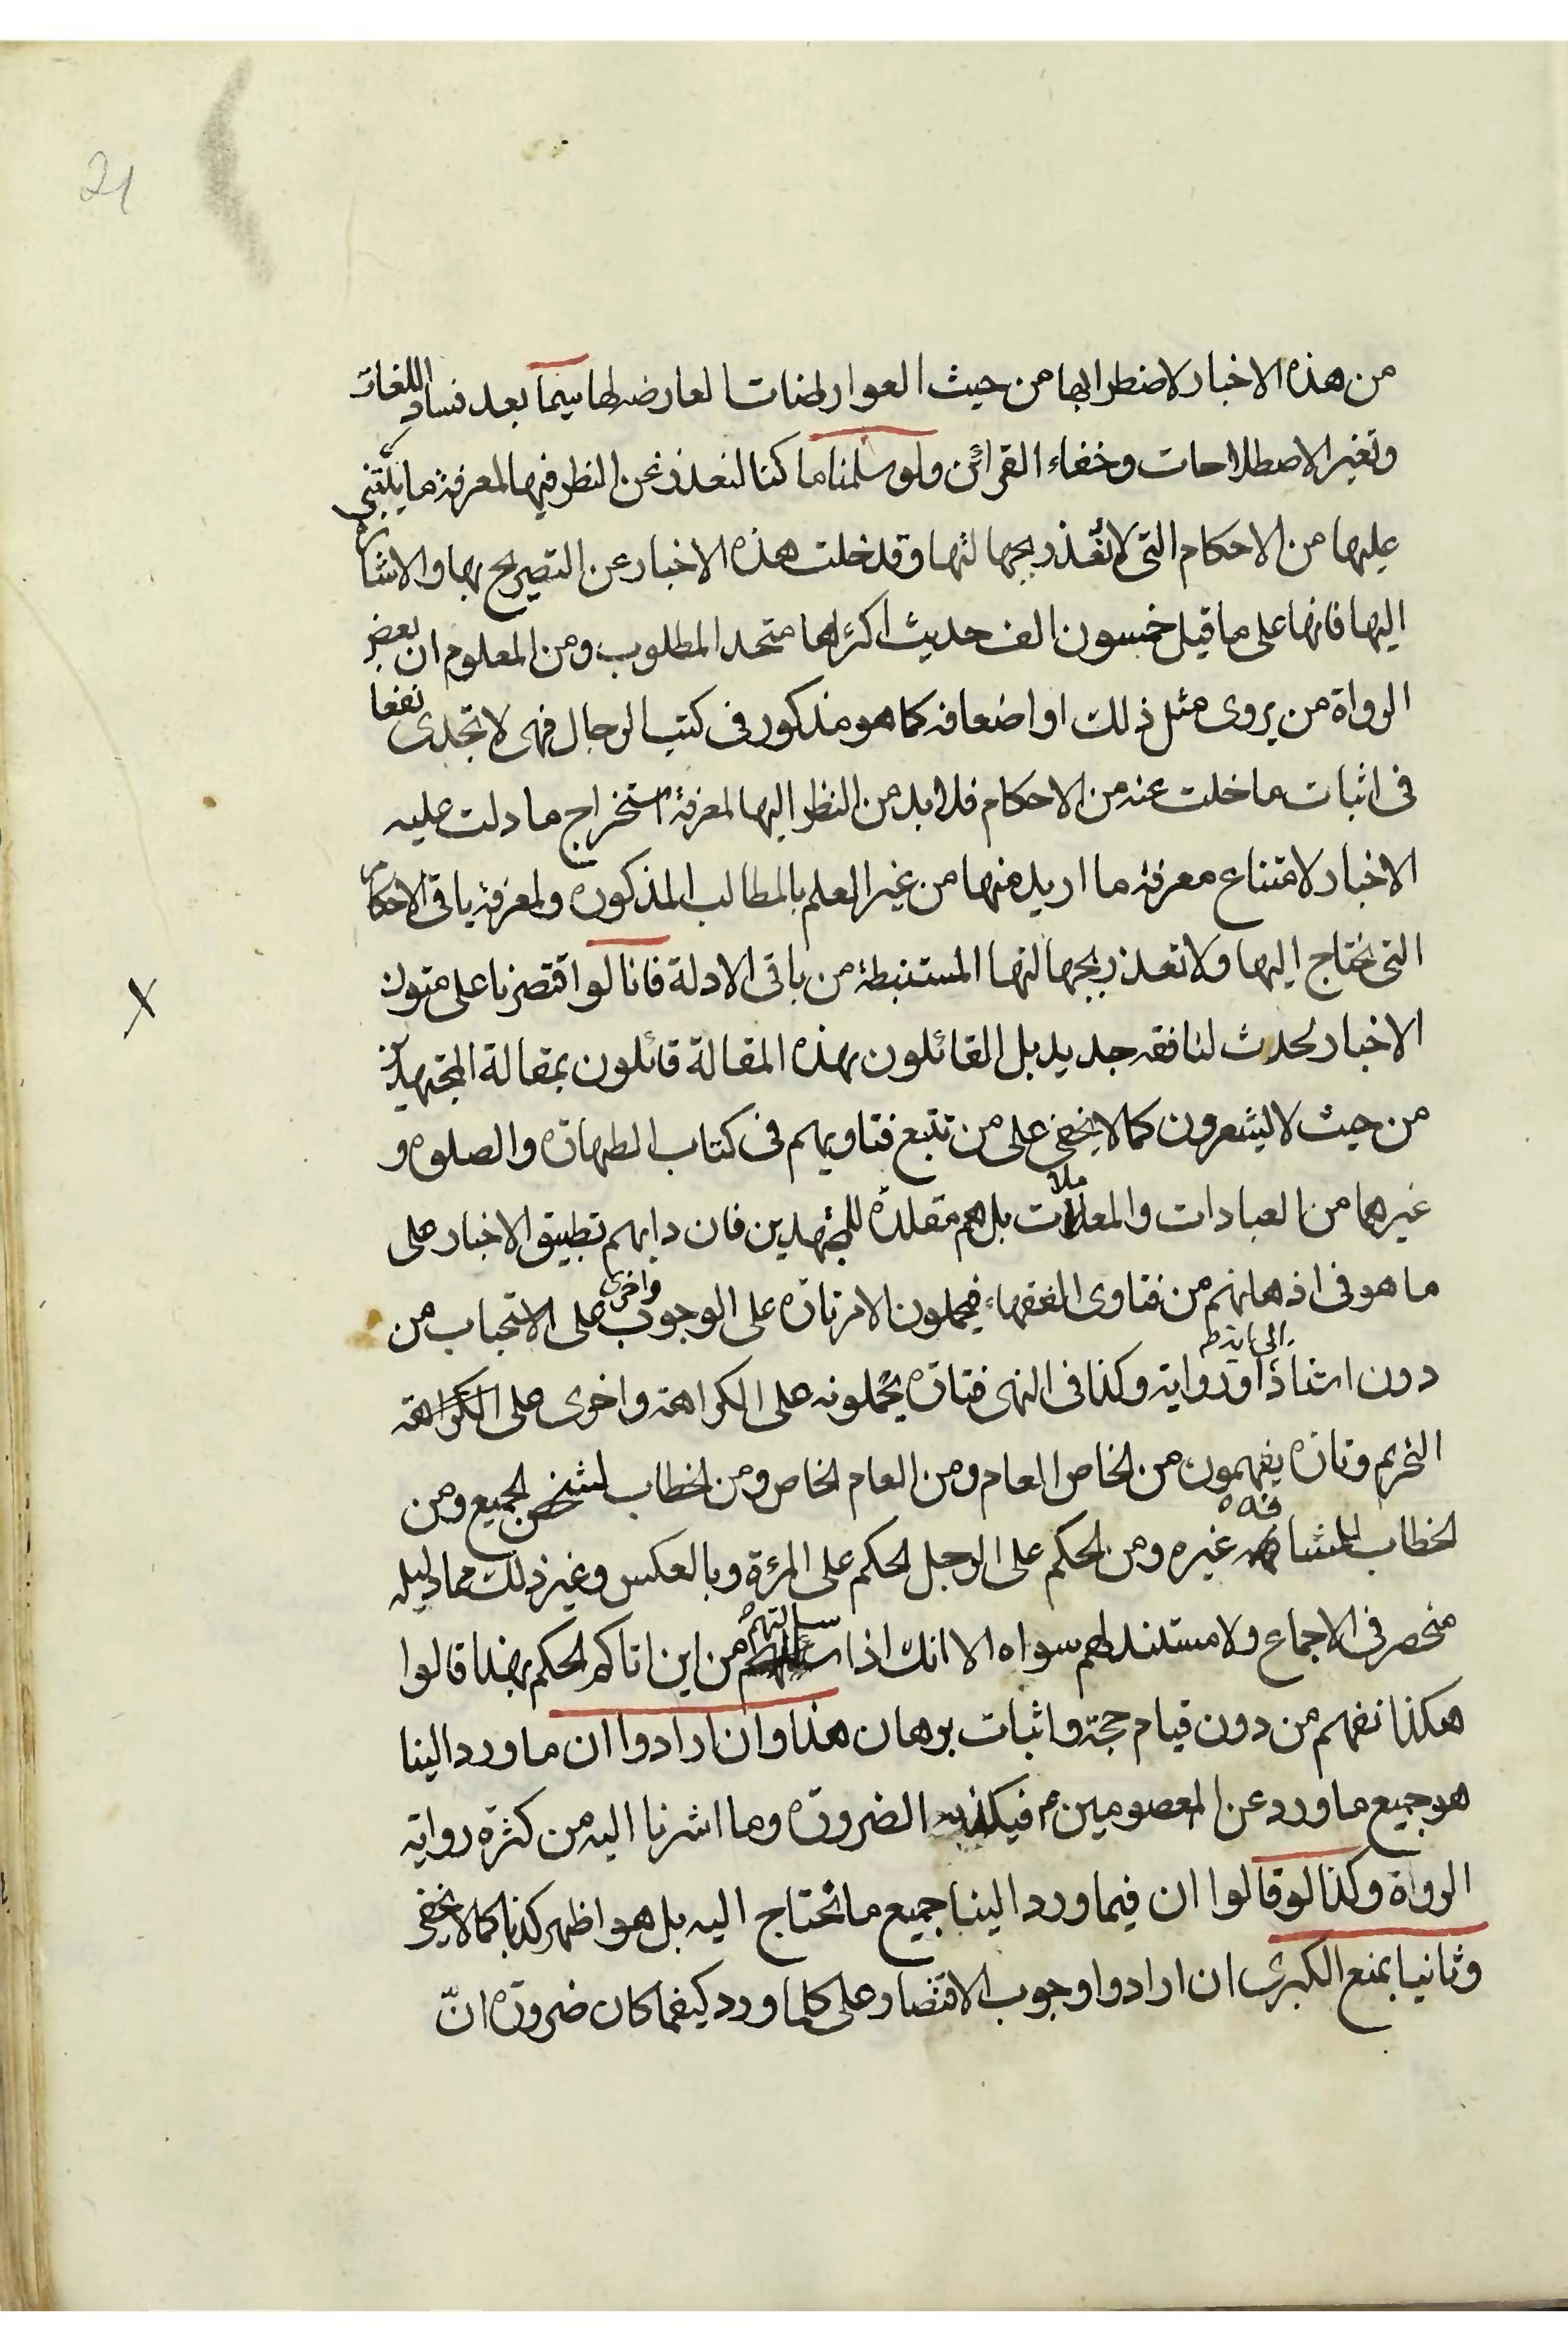 21
من هذه الاخبار لاضطرابها من حيث العوارضات العارضه لها سيما بعد فساد اللغات
وتغير الاصطلاحات وخفاء القرائن ولو سلمنا ما كنا لنعذر عن النظر فيها لمعرفة ما يبتنى
عليها من الاحكام التى لا نعذر بجهالتها وقد خلت هذه الاخبار عن التصريح بها والاشارة
اليها فانها على ما قيل خمسون الف حديث اكثرها متحد المطلوب ومن المعلوم ان بعض
الرواة من يروى مثل ذلك او اضعافه كما هو مذكور فى كتب الرجال فهى لا تجدى نفعا
فى اثبات ما خلت عنه من الاحكام فلا بد من النظر اليها لمعرفة استخراج ما دلت عليه
الاخبار لامتناع معرفة ما اريد منها من غير العلم بالمطالب المذكوره ولمعرفة باقى الاحكام
التى نحتاج اليها ولا نعذر بجهالتها المستنبطة من باقى الادلة فانا لو اقتصرنا على متون
الاخبار لحدث لنا فقه جديد بل القائلون بهذه المقالة قائلون بمقالة المجتهدين
من حيث لا يشعرون كما لا يخفى على من تتبع فتاويهم فى كتاب الطهارة والصلوه و
غيرهما من العبادات والمعاملات بل هم مقلدة للمجتهدين فان دابهم تطبيق الاخبار على
ما هو فى اذهانهم من فتاوى الفقهاء فيحملون الامر تارة على الوجوب واخرى على الاستحباب من
دون استناد الى اية او رواية وكذا فى النهى فتارة يحملونه على الكراهة واخرى على الكراهة
التحريم وتارة يفهمون من الخاص العام ومن العام الخاص ومن الخطاب لشخص الجميع ومن
الخطاب للمشافهه غيره ومن الحكم على الرجل الحكم على المرئة وبالعكس وغير ذلك مما دليله
منحصر فى الاجماع ولا مستند لهم سواه الا انك اذا سالتهم من اين اتاكم الحكم بهذا قالوا
هكذا نفهم من دون قيام حجة واثبات برهان هذا وان ارادوا ان ما ورد الينا
هو جميع ما ورد عن المعصومين ع فيكذبه الضرورة وما اشرنا اليه من كثرة رواية
الرواة وكذا لو قالوا ان فيما ورد الينا جميع ما نحتاج اليه بل هو اظهر كذبا كما لا يخفى
وثانيا بمنع الكبرى ان ارادوا وجوب الاقتصار على كلما ورد كيفما كان ضرورة انّ